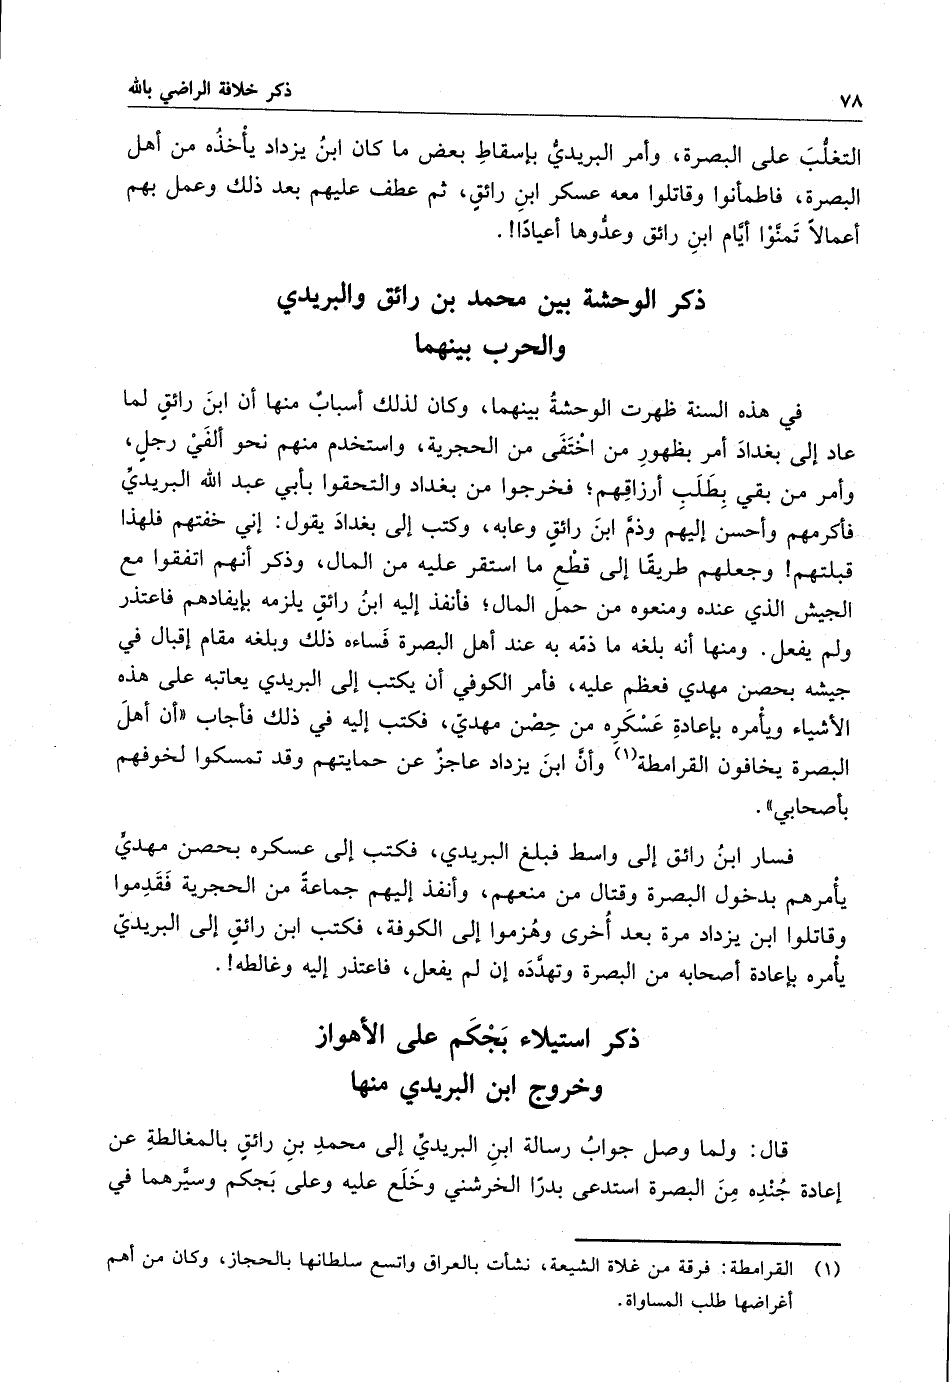 ٧٨
ذكر خلافة الراضي بالله
التغلُّبَ على البصرة، وأمر البريديُّ بإسقاطِ بعض ما كان ابنُ يزداد يأخذُه من أهل
البصرة، فاطمأنوا وقاتلوا معه عسكر ابنِ رائقٍ، ثم عطف عليهم بعد ذلك وعمل بهم
أعمالاً تَمنَّوْا أيَّام ابنِ رائق وعدُّوها أعيادًا!.
ذكر الوحشة بين محمد بن رائق والبريدي
والحرب بينهما
في هذه السنة ظهرت الوحشةُ بينهما، وكان لذلك أسبابٌ منها أن ابنَ رائقٍ لما
عاد إلى بغدادَ أمر بظهورِ من اخْتَفَى من الحجرية، واستخدم منهم نحو ألفَيْ رجلٍ،
وأمر من بقي بِطَلَبِ أرزاقِهم؛ فخرجوا من بغداد والتحقوا بأبي عبد الله البريديِّ
فأكرمهم وأحسن إليهم وذمَّ ابنَ رائقٍ وعابه، وكتب إلى بغدادَ يقول: إني خفتهم فلهذا
قبلتهم! وجعلهم طريقًا إلى قطْعِ ما استقر عليه من المال، وذكر أنهم اتفقوا مع
الجيش الذي عنده ومنعوه من حملِ المال؛ فأنفذ إليه ابنُ رائقٍ يلزمه بإيفادهم فاعتذر
ولم يفعل. ومنها أنه بلغه ما ذمّه به عند أهل البصرة فَساءه ذلك وبلغه مقام إقبال في
جيشه بحصن مهدي فعظم عليه، فأمر الكوفي أن يكتب إلى البريدي يعاتبه على هذه
الأشياء ويأمره بإعادةِ عَسْكَرِه من حِصْن مهديّ، فكتب إليه في ذلك فأجاب «أن أهلَ
البصرة يخافون القرامطة(١) وأنَّ ابنَ يزداد عاجزٌ عن حمايتهم وقد تمسكوا لخوفهم
بأصحابي».
فسار ابنُ رائق إلى واسط فبلغ البريدي، فكتب إلى عسكره بحصن مهديِّ
يأمرهم بدخول البصرة وقتال من منعهم، وأنفذ إليهم جماعةً من الحجرية فَقَدِموا
وقاتلوا ابن يزداد مرة بعد أُخرى وهُزموا إلى الكوفة، فكتب ابن رائقٍ إلى البريديّ
يأمره بإعادة أصحابه من البصرة وتهدَّدَه إن لم يفعل، فاعتذر إليه وغالطه!.
ذكر استيلاء بَجْكَم على الأهواز
وخروج ابن البريدي منها
قال: ولما وصل جوابُ رسالة ابنِ البريديِّ إلى محمدِ بنِ رائقٍ بالمغالطةِ عن
إعادة جُنْدِه مِنَ البصرة استدعى بدرًا الخرشني وخَلَع عليه وعلى بَجكم وسيَّرهما في
(١) القرامطة: فرقة من غلاة الشيعة، نشأت بالعراق واتسع سلطانها بالحجاز، وكان من أهم
أغراضها طلب المساواة.